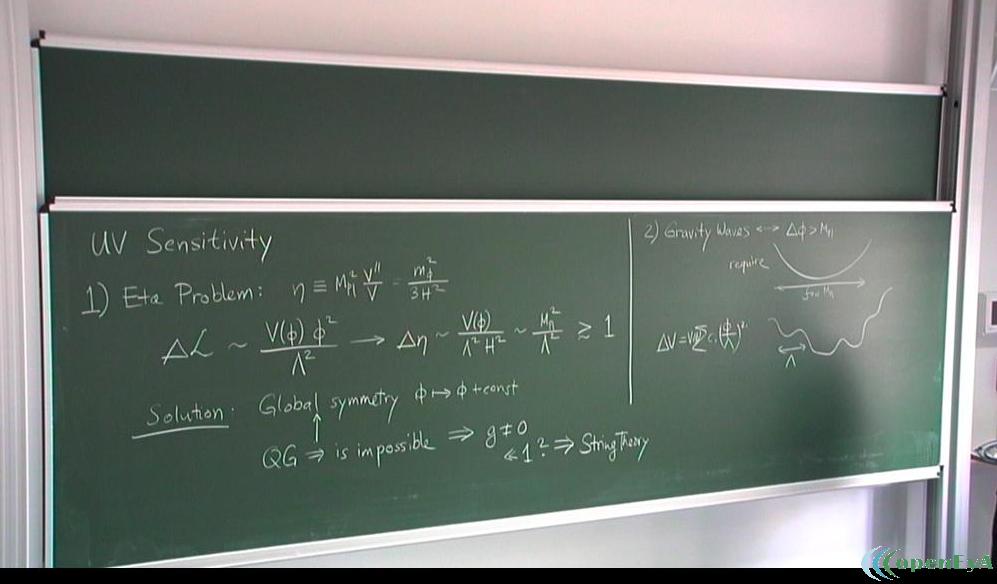 UV Sensitivity
1) Eta Problem: η ≡ M_Pl² V''/V = m_ϕ²/3H²
Δℒ ~ V(ϕ) ϕ²/Λ² → Δη ~ V(ϕ)/Λ² H² ~ M_Pl²/Λ² ≳ 1
Solution: Global symmetry ϕ ↦ ϕ + const
↑
QG ⇒ is impossible ⇒ g ≠ 0
≪ 1 ? ⇒ String Theory
2) Gravity Waves ↔ Δϕ > M_Pl
require
few M_Pl
Λ
openEyA